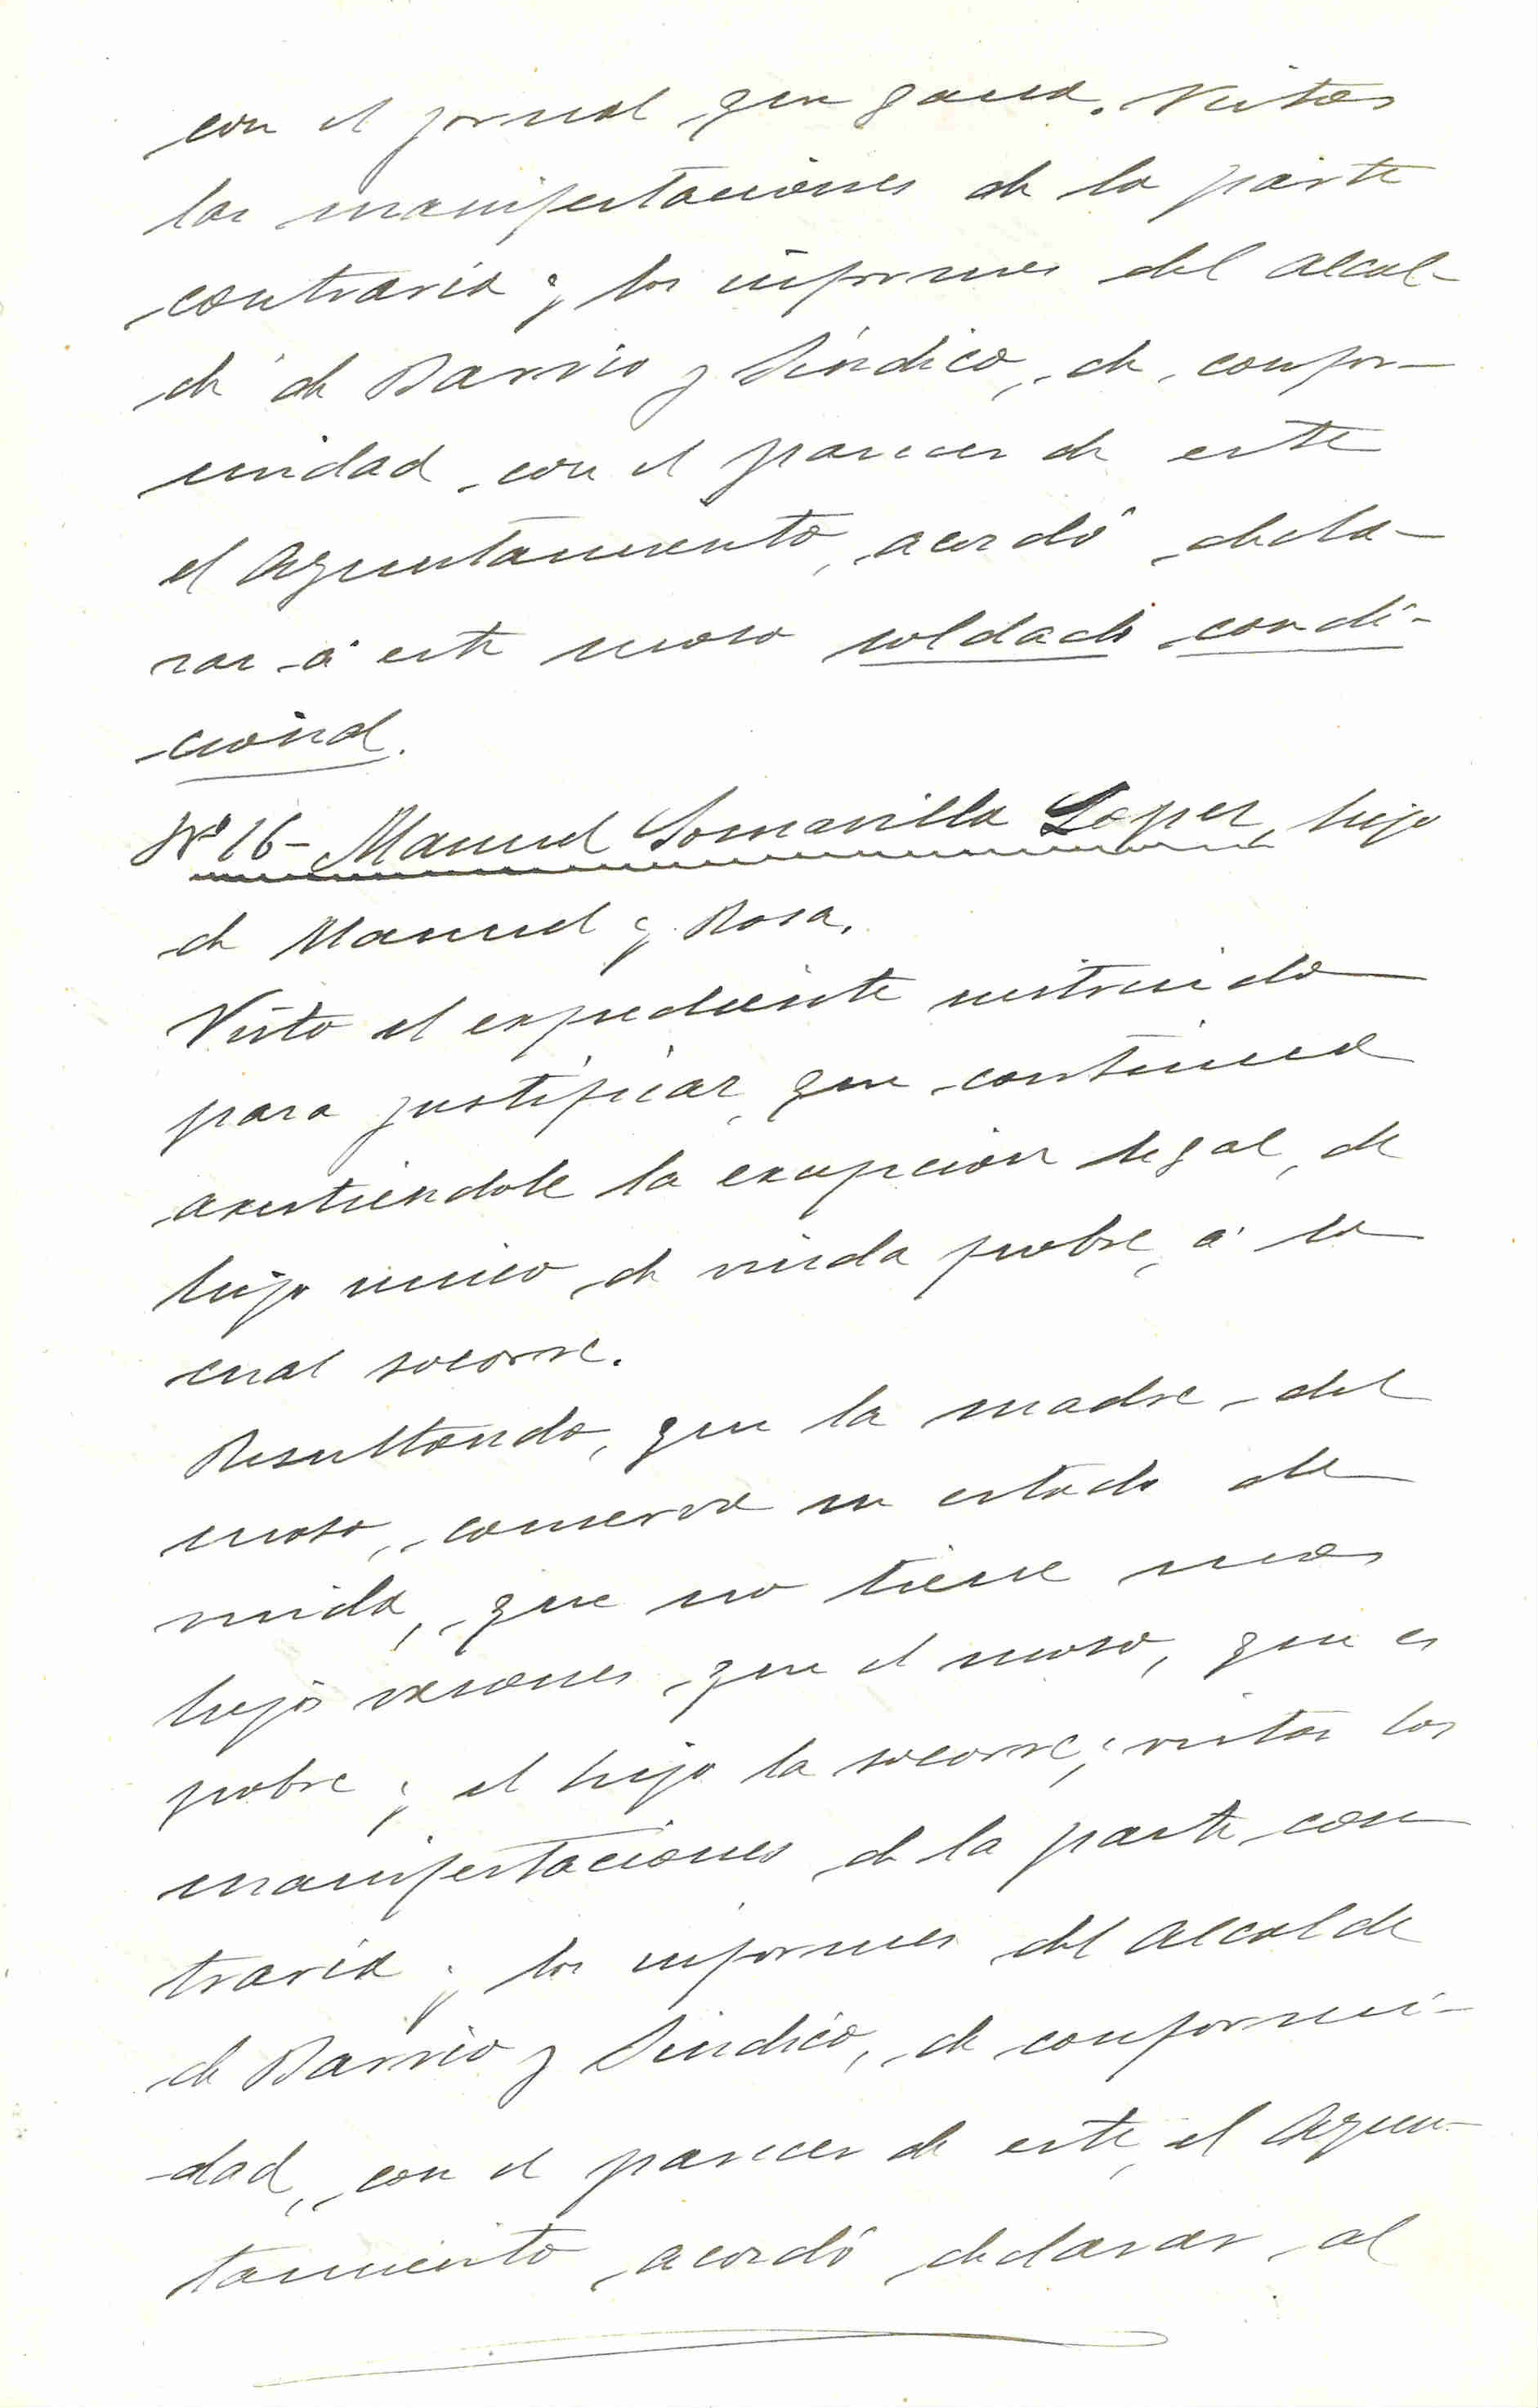 con el jornal que gana. Vistas
las manifestaciones de la parte
contraria y los informes del Alcal-
de de Barrio y Síndico, de confor-
midad con el parecer de este
el Ayuntamiento, acordó decla-
rar á este moso soldado condi-
cional.
Nº 16- Manuel Somavilla Lopez, hijo
de Manuel y Rosa.
Visto el expediente instruido
para justificar, que continua
axistiendole la exepcion legal, de
hijo unico de viuda pobre, á la
cual socorre.
Resultando, que la madre del
moso, conserva su estado de
viuda, que no tiene mas
hijos varones que el moso, que es
pobre y el hijo la socorre; vistas las
manifestaciones de la parte con
traria y los informes del Alcalde
de Barrio y Sindico, de conformi-
dad, con el parecer de este, el Ayun-
tamiento acordó declarar al